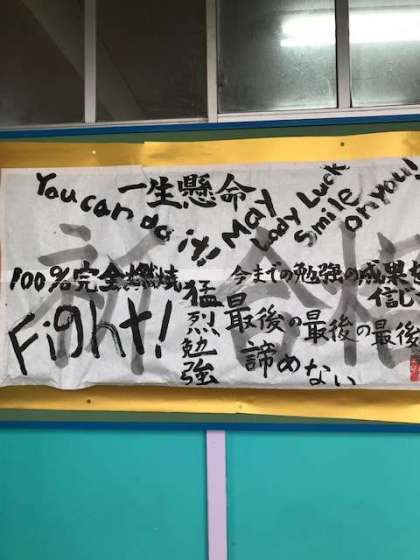 You can do it!!
一生懸命
May Lady Luck Smile on you!
祈合格
100%完全燃焼
Fight!
猛烈勉強
今までの勉強の成果を
信じ
最後の最後の最後
諦めない